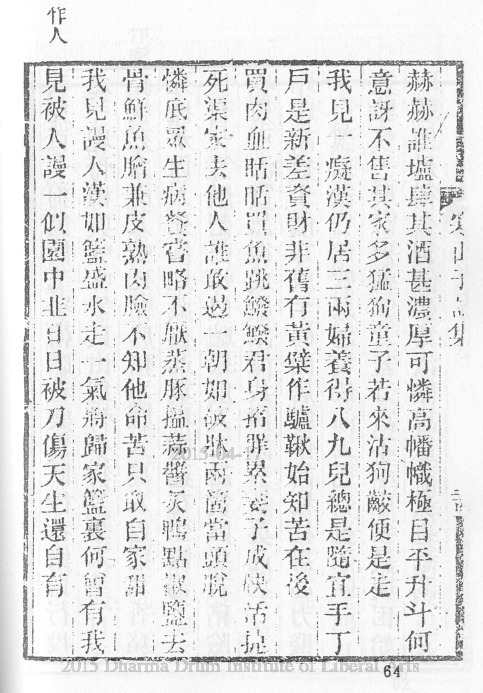 作人
寒山子詩集
赫赫誰壚肆其酒甚濃厚可憐高幡幟極目平升斗何
意訝不售其家多猛狗童子若來沽狗齩便是走
我見一癡漢仍居三兩婦養得八九兒總是隨宜手丁
戶是新差資財非舊有黃檗作驢鞦始知苦在後
買肉血買魚跳鱍鱍君身招罪累妻子成快活
死渠家去他人誰敢遏一朝如破牀兩箇當頭脫
憐底眾生病餐嘗略不厭蒸豚搵蒜醬炙鴨點椒鹽去
骨鮮魚膾兼皮熟肉臉不知他命苦只取自家甜
我見謾人漢如籃盛水走一氣將歸家籃裏何曾有我
見被人謾一似園中韭日日被刀傷天生還自有
64
2015 Dharma Drum Institute of Liberal Arts